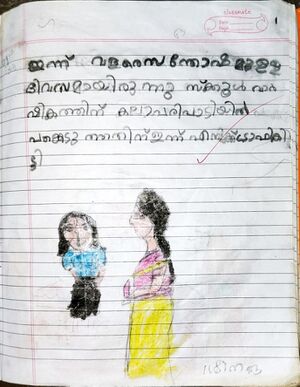 classmate
Date
Page
ഇന്ന് വളരെ സന്തോഷമുള്ള
ദിവസമായിരുന്നു സ്ക്കൂൾ വാർ
ഷികത്തിന് കലാപരിപാടിയിൽ
പങ്കെടുത്തതിന് ഇന്ന് എനിക്ക് ട്രോഫി കി
ട്ടി